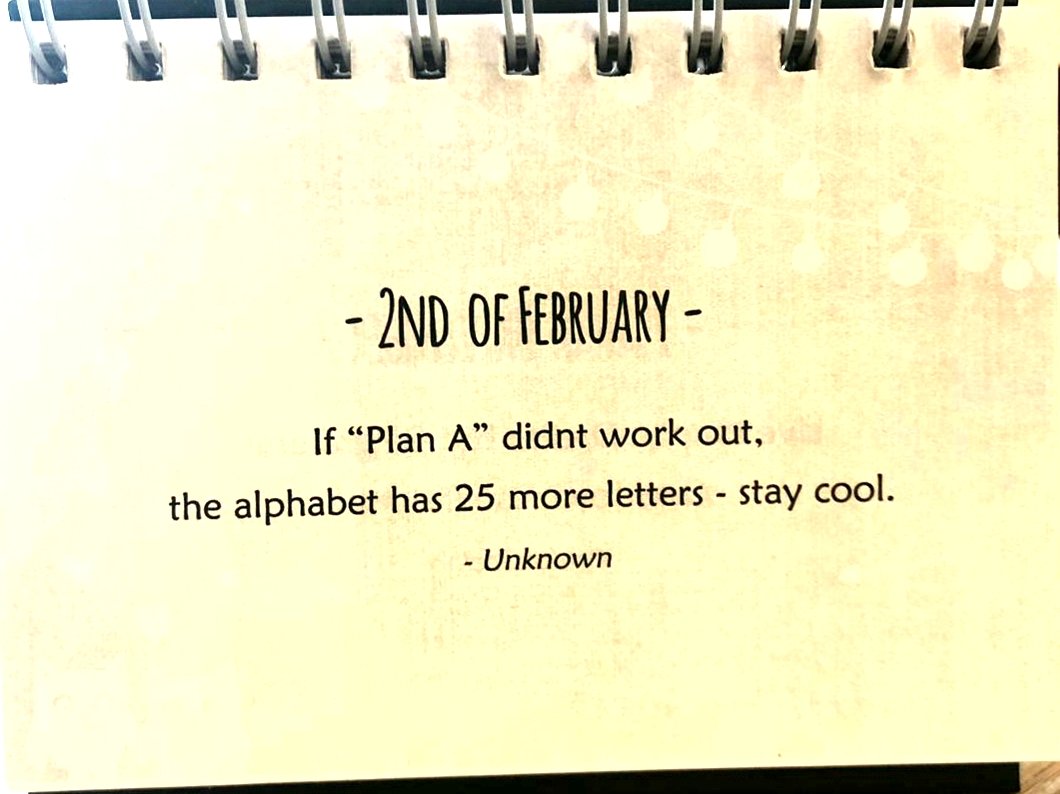 - 2ND OF FEBRUARY -
If “Plan A” didnt work out,
the alphabet has 25 more letters - stay cool.
- Unknown